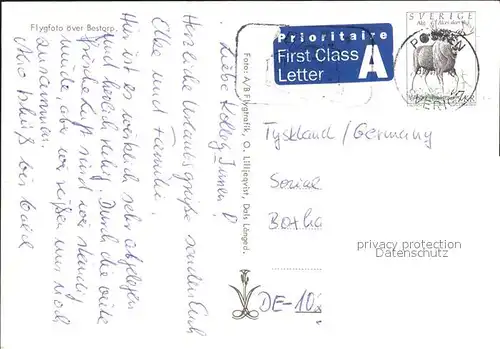 Flygfoto över Bestorp
Liebe Kolleg Innen!
Herzliche Urlaubsgrüße senden Euch
Elke und Familie.
Hier ist es wirklich sehr abgelegen
und herrlich ruhig. Durch die viele
frische Luft sind wir ständig
müde aber wir reißen uns noch
zusammen.
Also tschüß bis bald
Foto: A/B Flygtrafik, O. Lilljeqvist, Dals Långed.
Prioritaire
First Class
Letter
A
SVERIGE
POSTEN
Tyskland / Germany
Sozial
Botha
DE-10
privacy protection
Datenschutz